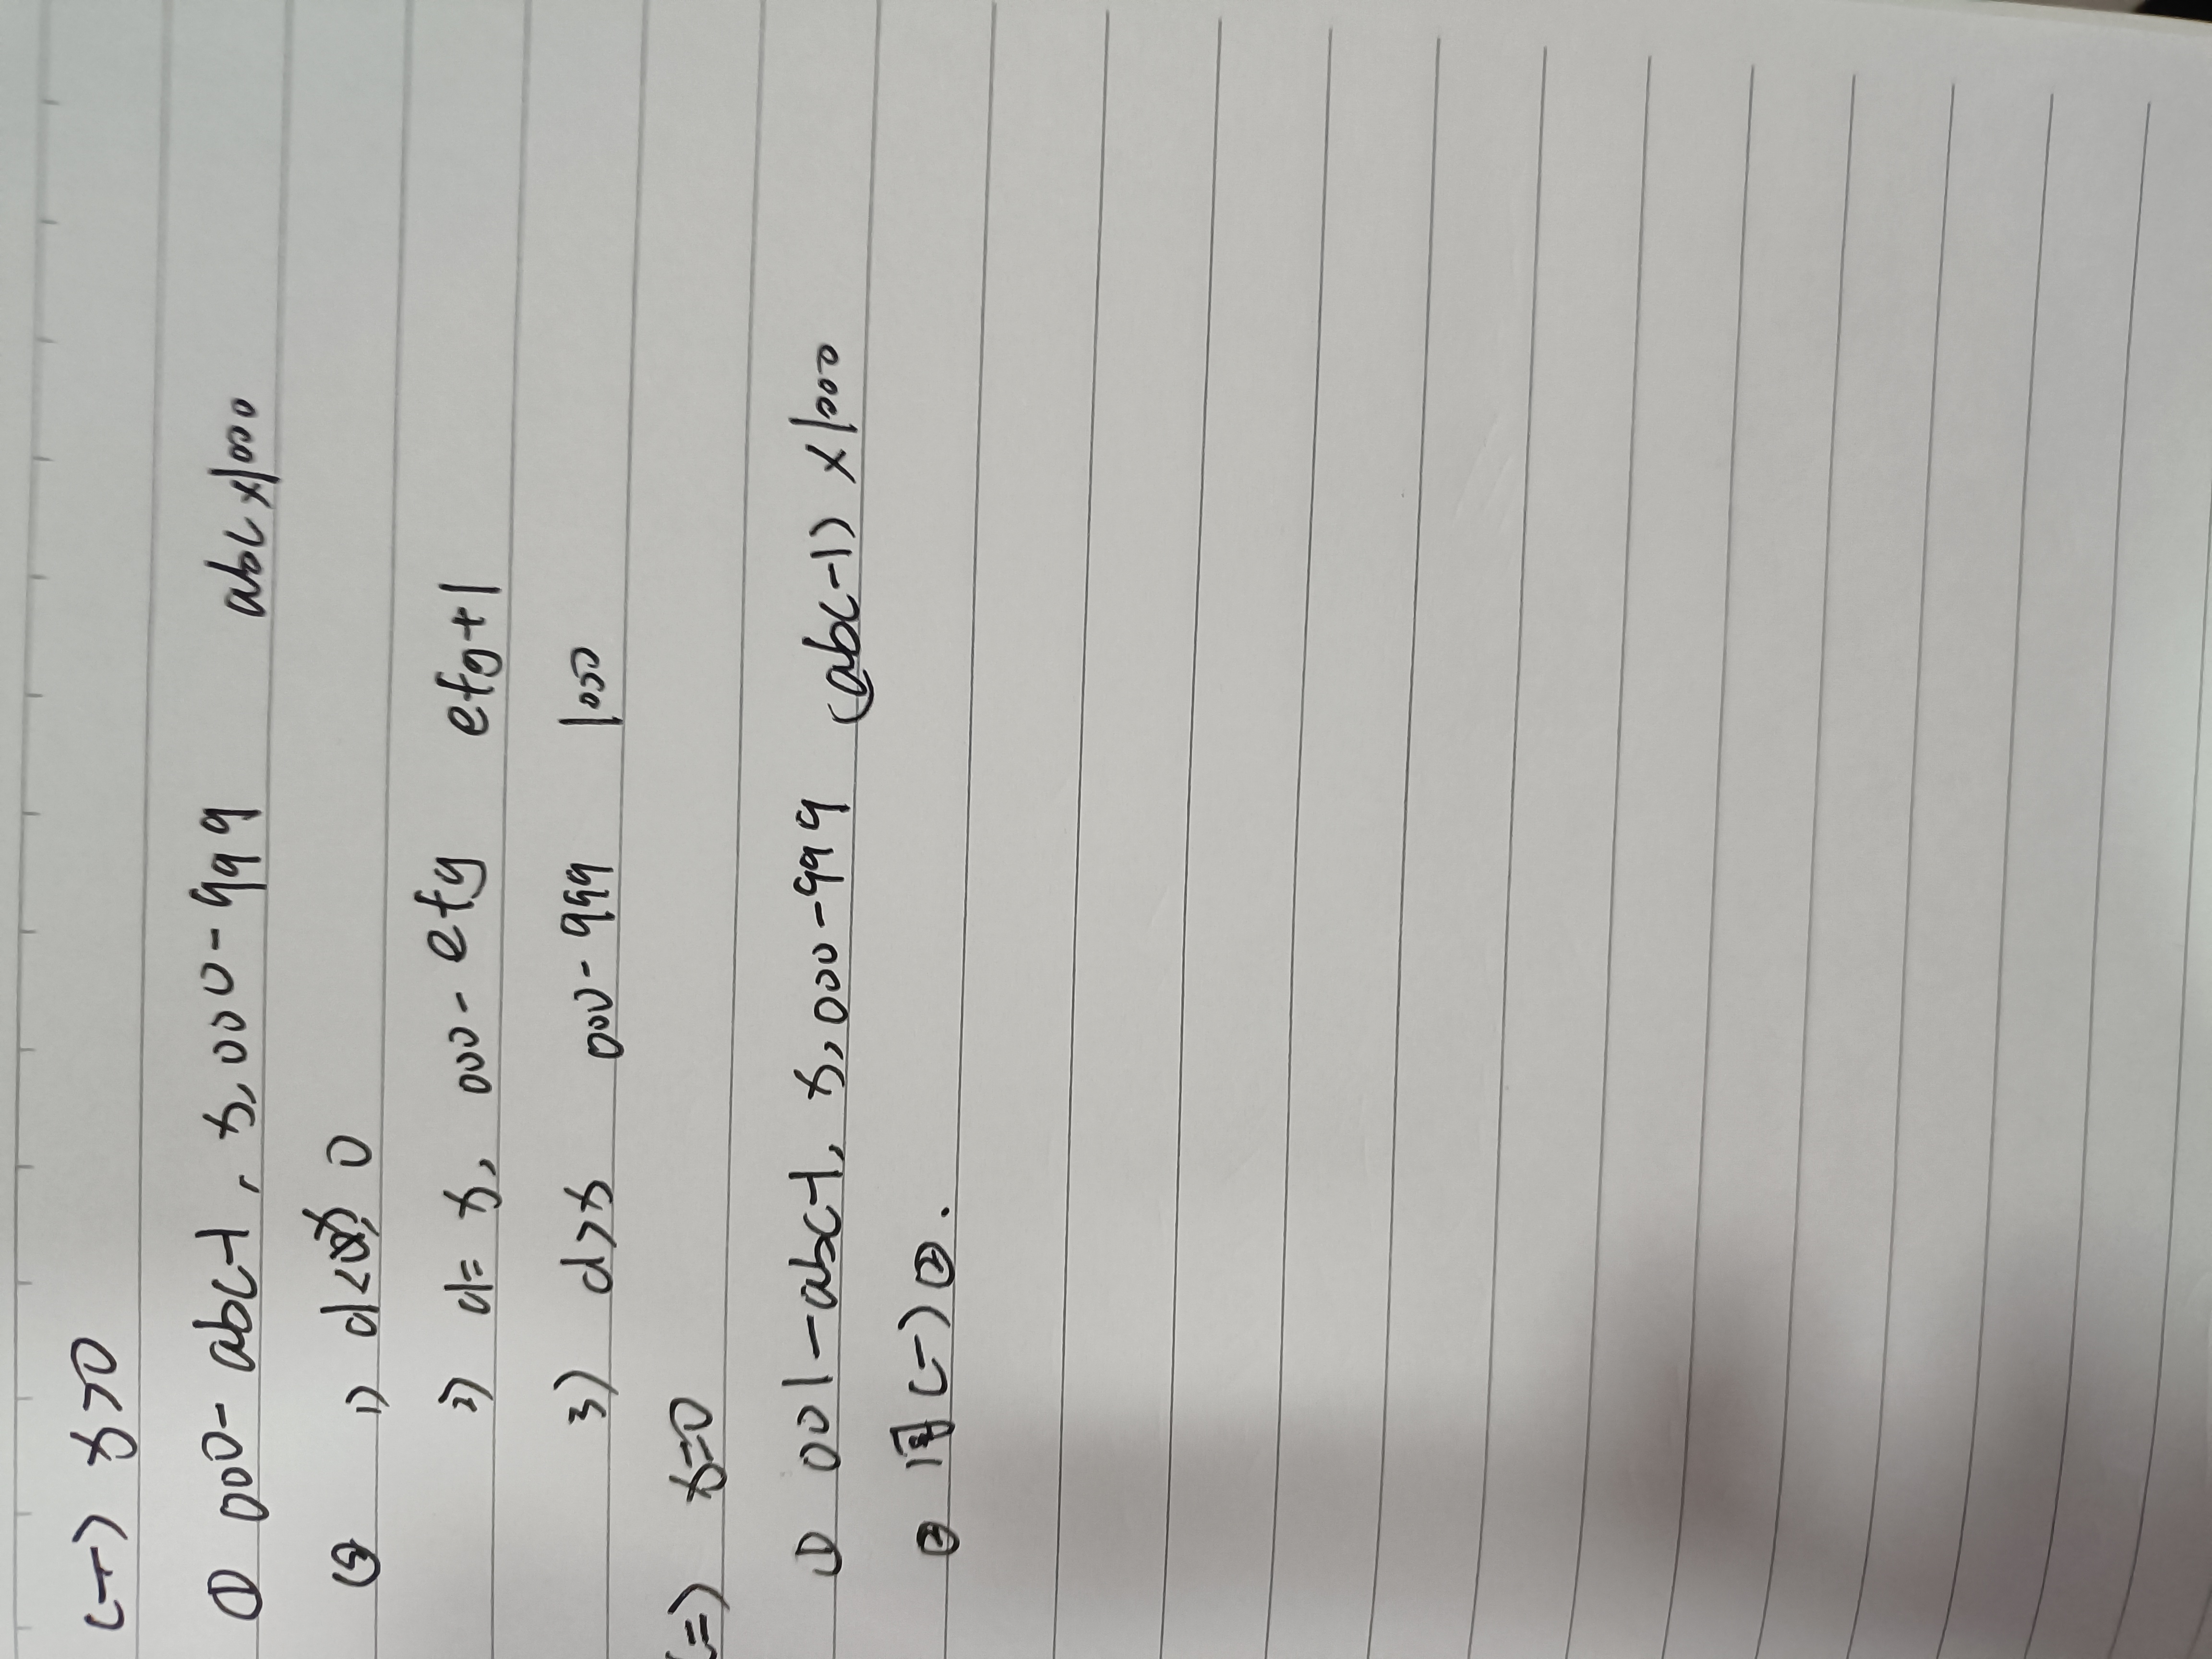 (一) x>0
① 000-abc-1, x, 000-999 abc×1000
② 1) d<x, 0
2) d=x, 000-efg efg+1
3) d>x 000-999 1000
(二) x=0
① 001-abc-1, x, 000-999 (abc-1)×1000
② 同(一)②.